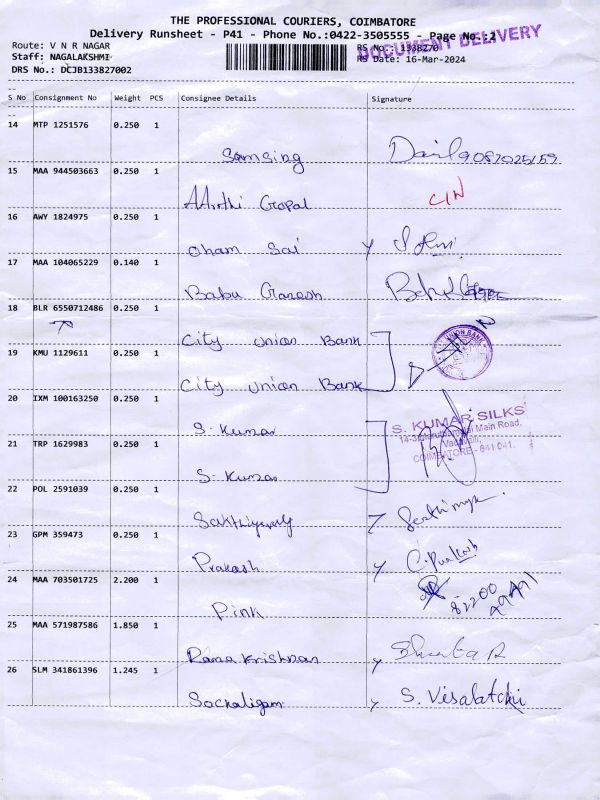 THE PROFESSIONAL COURIERS, COIMBATORE
Delivery Runsheet - P41 - Phone No.:0422-3505555 - Page No.:2
DOCUMENT DELIVERY
Route: V N R NAGAR
Staff: NAGALAKSHMI
DRS No.: DCJB133827002
RS No.: 1338270
RS Date: 16-Mar-2024
S No Consignment No Weight PCS Consignee Details Signature
14 MTP 1251576 0.250 1
Samsing
15 MAA 944503663 0.250 1
Gopal
16 AWY 1824975 0.250 1
Oham Sai
17 MAA 104065229 0.140 1
Babu Ganesh
18 BLR 6550712486 0.250 1
City Union Bank
UNION BANK
19 KMU 1129611 0.250 1
City Union Bank
20 IXM 100163250 0.250 1
S. Kumar
S. KUMAR SILKS
Main Road,
COIMBATORE - 641 041.
21 TRP 1629983 0.250 1
S. Kumar
22 POL 2591039 0.250 1
23 GPM 359473 0.250 1
Prakash C. Prakash
24 MAA 703501725 2.200 1
Pink
25 MAA 571987586 1.850 1
Rama Krishnan
26 SLM 341861396 1.245 1
Sockaligam S. Visalatchi